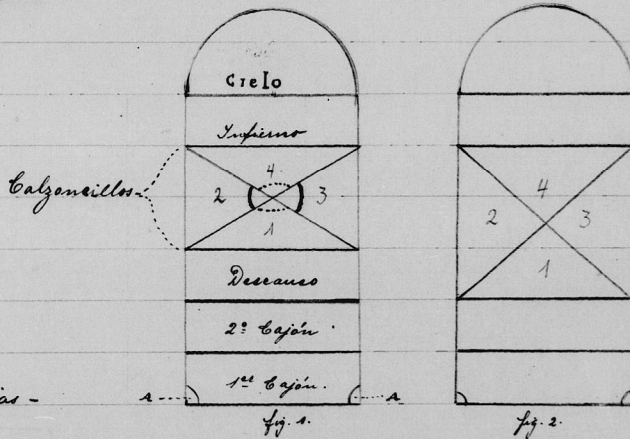 Cielo
Infierno
Calzoncillos
4
2 3
1
Descanso
2º Cajón
1er Cajón.
A A
fig. 1.
4
2 3
1
fig. 2.